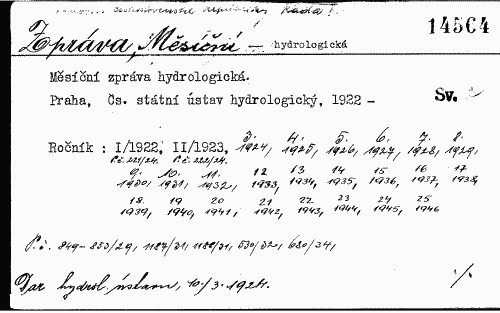 československé republiky Řada I.
14564
Zpráva, Měsíční — hydrologická
Měsíční zpráva hydrologická.
Praha, Čs. státní ústav hydrologický, 1922 -
Sv.
3. 4. 5. 6. 7. 8.
Ročník : I/1922, II/1923, 1924, 1925, 1926, 1927, 1928, 1929,
Př.č. 221/24. Př.č. 222/24.
9. 10. 11. 12 13 14 15 16 17
1930, 1931, 1932, 1933, 1934, 1935, 1936, 1937, 1938,
18. 19 20 21 22 23 24 25
1939, 1940, 1941, 1942, 1943, 1944, 1945, 1946
Př.č. 849-853/29, 1187/31, 1188/31, 530/32, 680/34,
Dar hydrol. ústavu, 10./3. 1924.